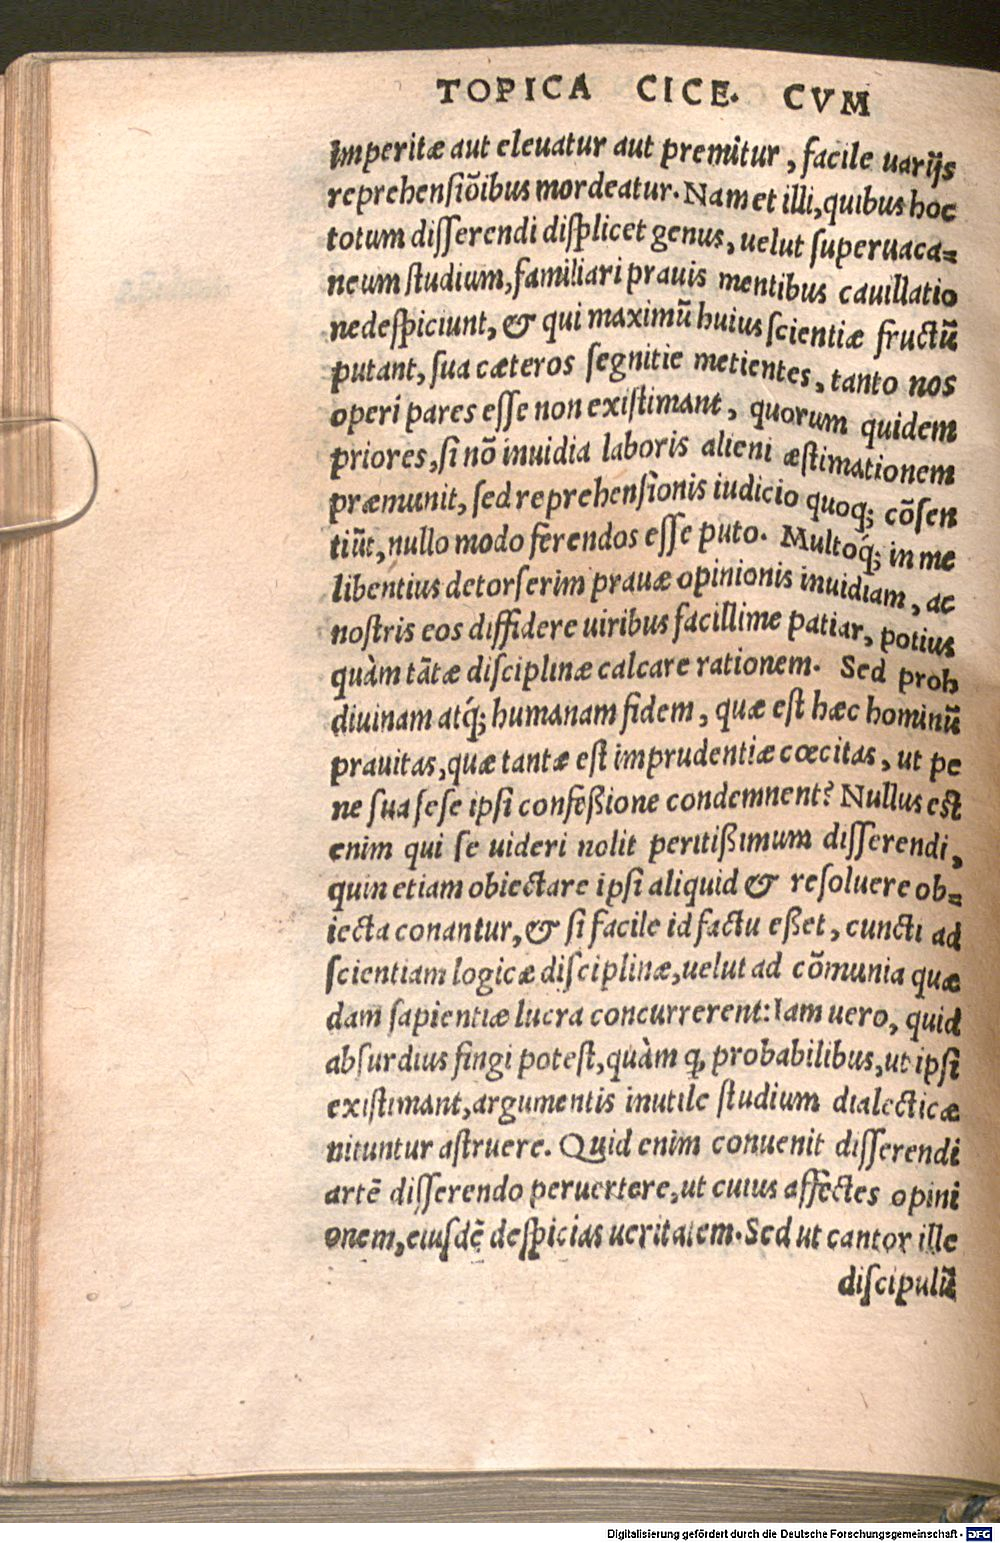 TOPICA CICE. CVM
imperitæ aut eleuatur aut premitur, facile uarijs
reprehensiōibus mordeatur. Nam et illi, quibus hoc
totum disserendi displicet genus, uelut superuaca-
neum studium, familiari prauis mentibus cauillatio
nedespiciunt, & qui maximū huius scientiæ fructū
putant, sua cæteros segnitie metientes, tanto nos
operi pares esse non existimant, quorum quidem
priores, si nō inuidia laboris alieni æstimationem
præmunit, sed reprehensionis iudicio quoq; cōsen
tiūt, nullo modo ferendos esse puto. Multoq́; in me
libentius detorserim prauæ opinionis inuidiam, ac
nostris eos diffidere uiribus facillime patiar, potius
quàm tātæ disciplinæ calcare rationem. Sed proh
diuinam atq́; humanam fidem, quæ est hæc hominū
prauitas, quæ tantæ est imprudentiæ cœcitas, ut pe
ne sua sese ipsi confeßione condemnent? Nullus est
enim qui se uideri nolit peritißimum disserendi,
quin etiam obiectare ipsi aliquid & resoluere ob-
iecta conantur, & si facile id factu eßet, cuncti ad
scientiam logicæ disciplinæ, uelut ad cōmunia quæ
dam sapientiæ lucra concurrerent: Iam uero, quid
absurdius fingi potest, quàm ꝙ probabilibus, ut ipsi
existimant, argumentis inutile studium dialecticæ
nituntur astruere. Quid enim conuenit disserendi
artē disserendo peruertere, ut cuius affectes opini
onem, eiusdē despicias ueritatem. Sed ut cantor ille
discipulū
Digitalisierung gefördert durch die Deutsche Forschungsgemeinschaft - DFG